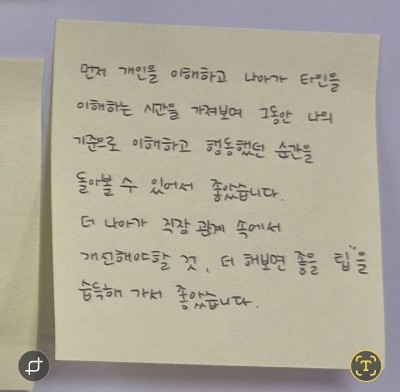 먼저 개인을 이해하고 나아가 타인을
이해하는 시간을 가져보며 그동안 나의
기준으로 이해하고 행동했던 순간을
돌아볼 수 있어서 좋았습니다.
더 나아가 직장 관계 속에서
개선해야할 것, 더 해보면 좋을 팁"을
습득해 가서 좋았습니다.